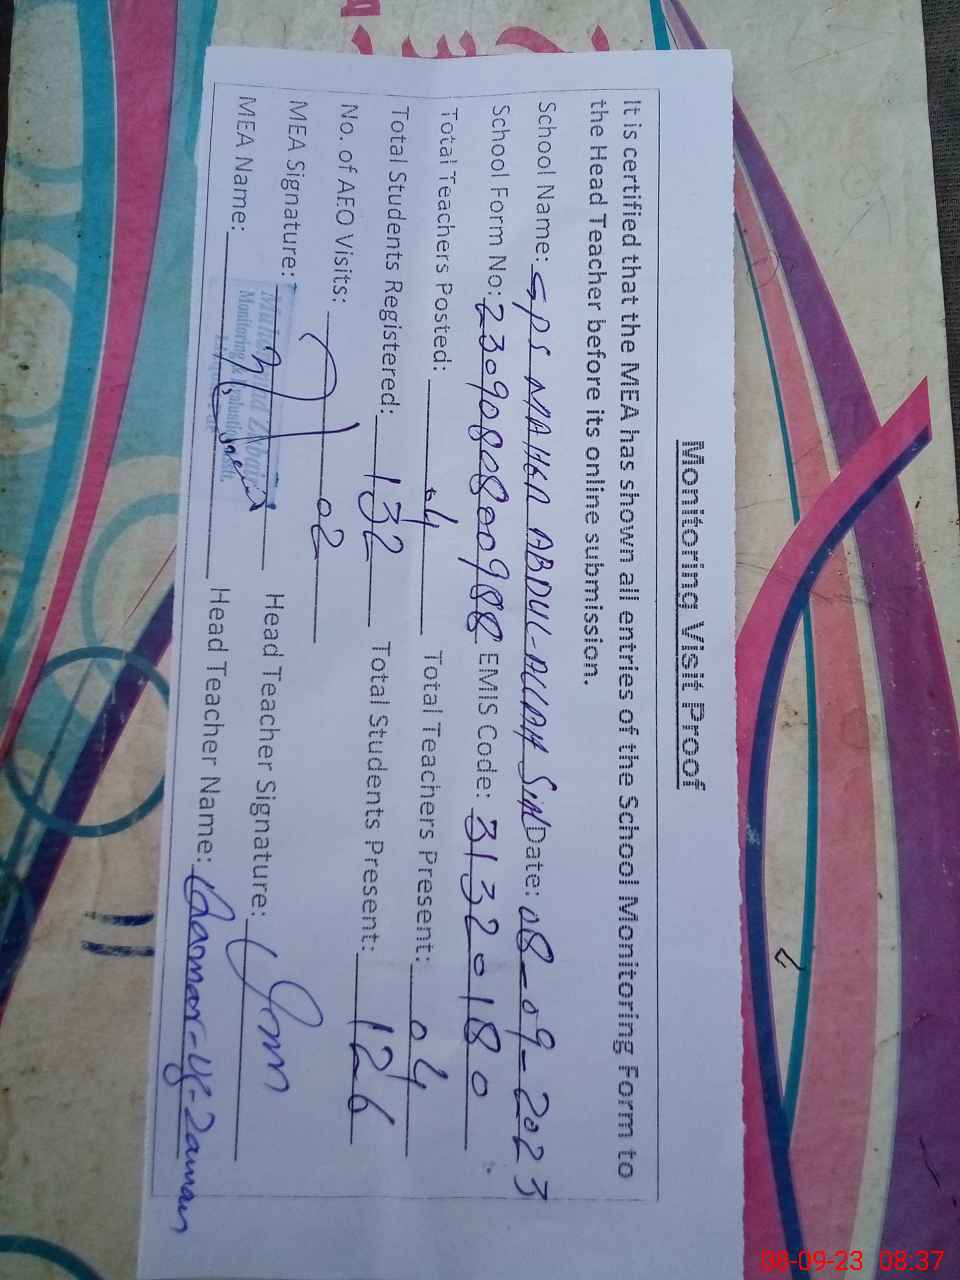 Monitoring Visit Proof
It is certified that the MEA has shown all entries of the School Monitoring Form to
the Head Teacher before its online submission.
School Name: GPS MAHKA ABDUL-ALLAH SiAL Date: 08-09-2023
School Form No: 2309080800988 EMIS Code: 31320180
Total Teachers Posted: 04 Total Teachers Present: 04
Total Students Registered: 132 Total Students Present: 126
No. of AEO Visits: 02
MEA Signature: Head Teacher Signature:
MEA Name: Head Teacher Name: Qamar-Uz-Zaman
Monitoring & Evaluation
08-09-23 08:37